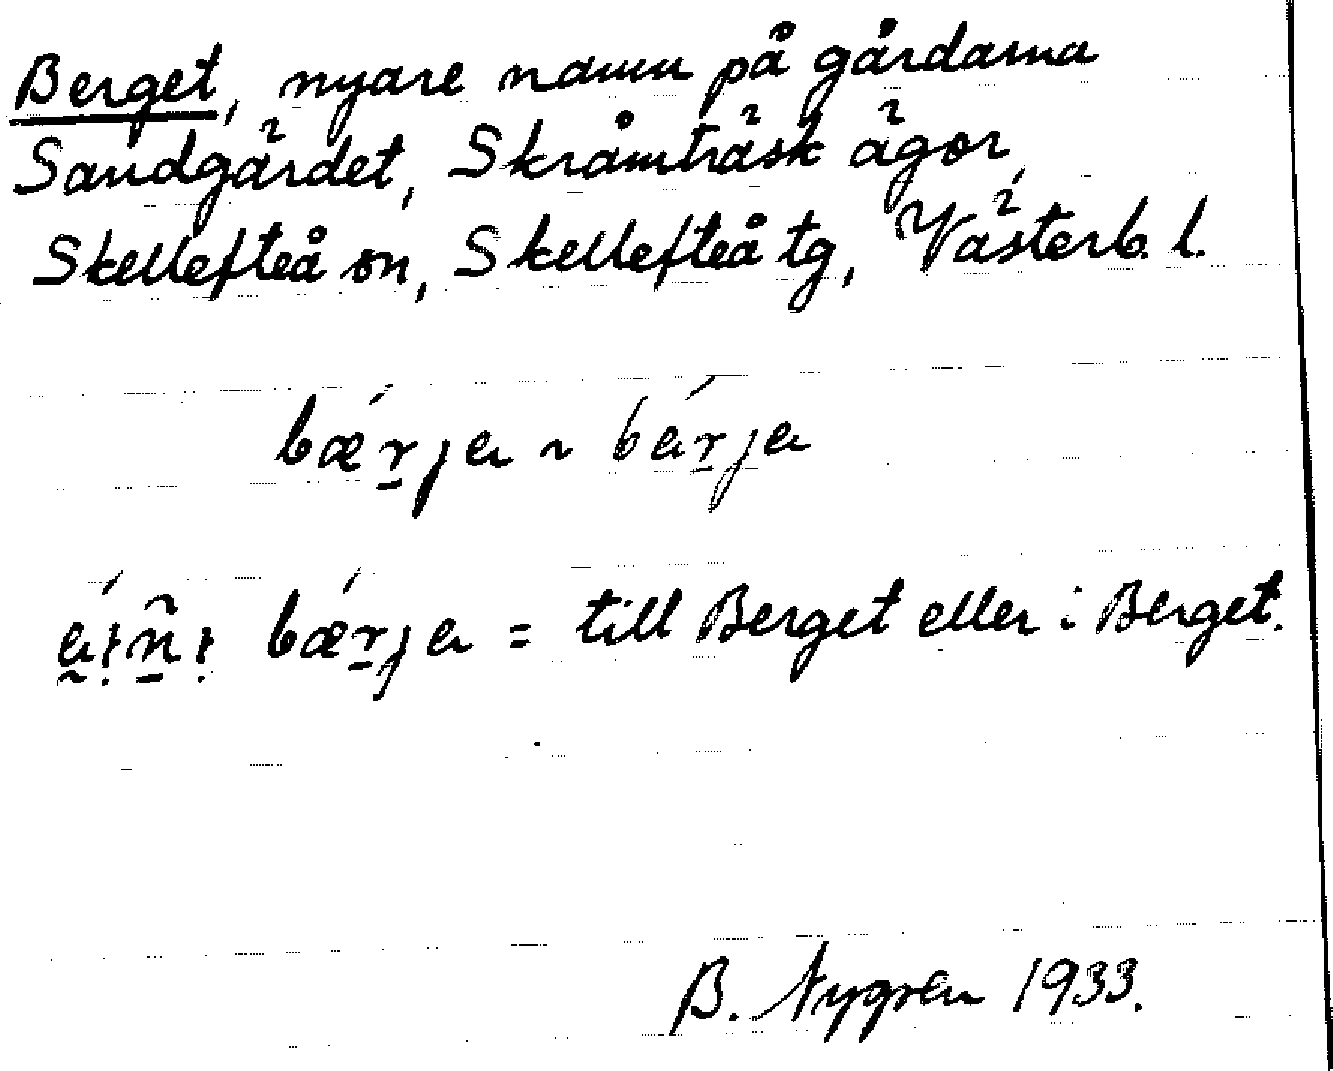 Berget, nyare namn på gårdarna
Sandgärdet, Skråmträsk ägor,
Skellefteå sn, Skellefteå tg, Västerb. l.
bæ´r̠ja ~ bá r̠ja
bæ´r̠ja = till Berget eller i Berget.
B. Nygren 1933.